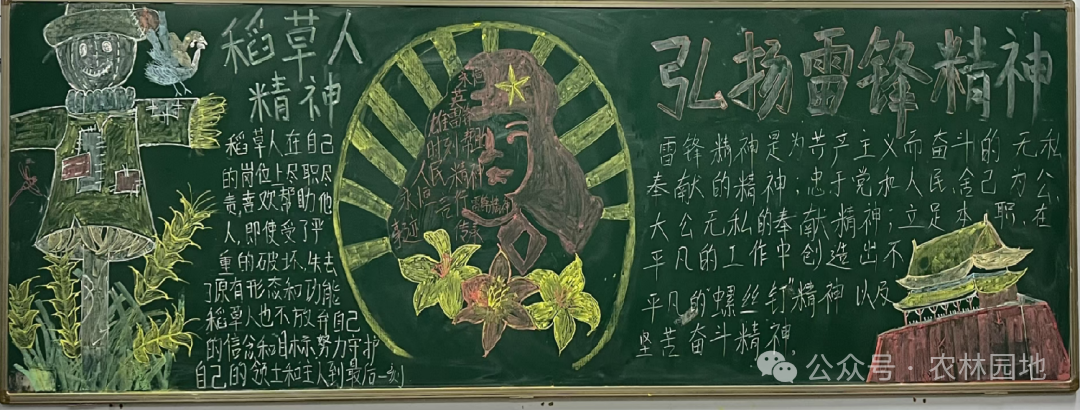 稻草人
精神
稻草人在自己
的岗位上尽职尽
责,喜欢帮助他
人,即使受了严
重的破坏,失去
了原有形态和功能
稻草人也不放弃自己
的信念和目标示努力守护
自己的领土和主人到最后一刻
弘扬雷锋精神
雷锋精神是为共产主义而奋斗的无私
奉献的精神;忠于党和人民、舍己为公、
大公无私的奉献精神;立足本职、在
平凡的工作中创造出不
平凡的"螺丝钉"精神以及
坚苦奋斗精神,
公众号·农林园地